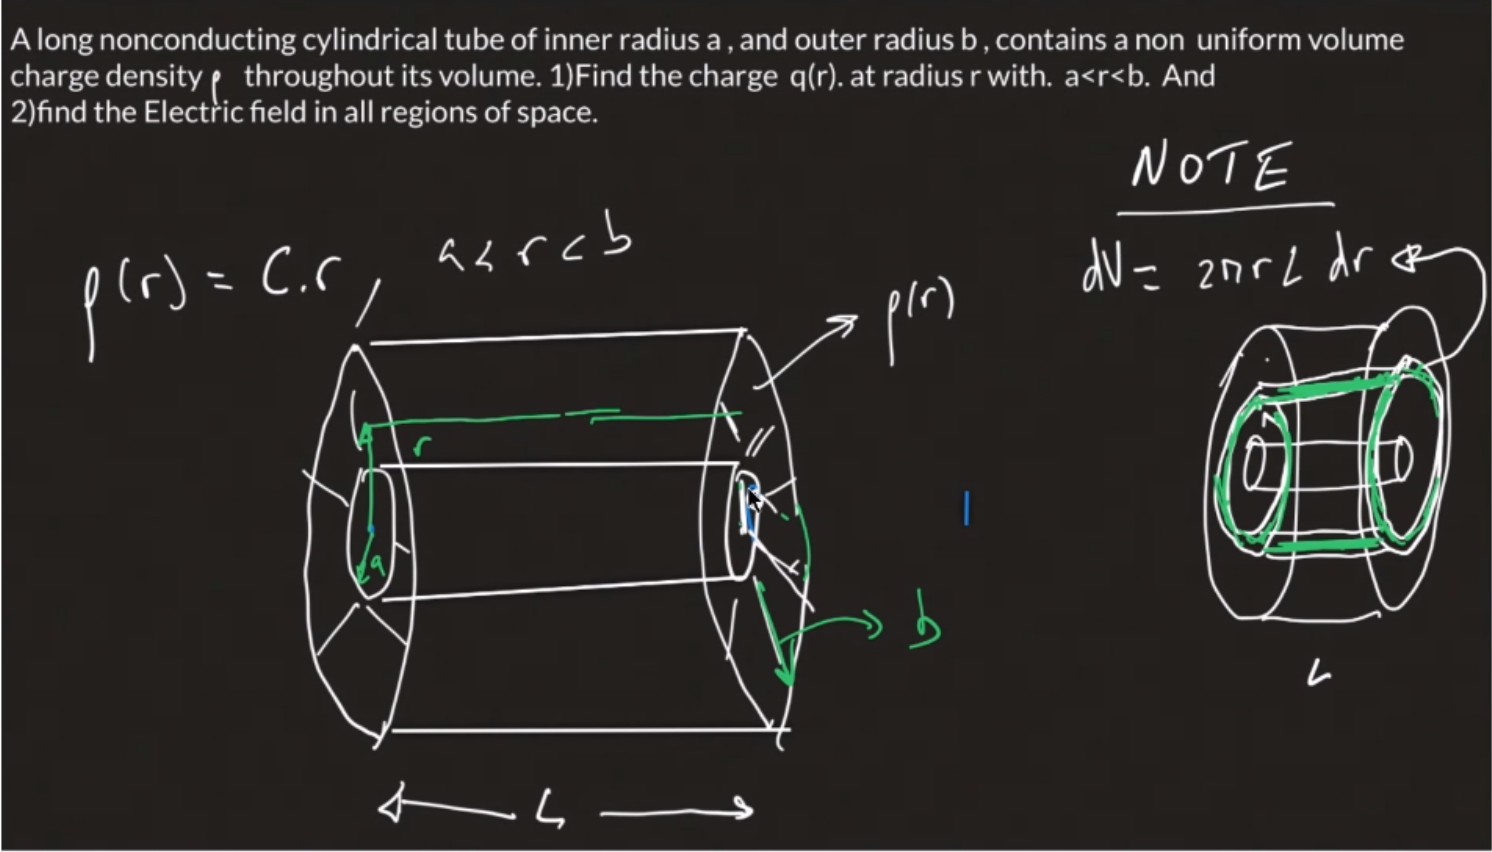 A long nonconducting cylindrical tube of inner radius a , and outer radius b , contains a non uniform volume
charge density ρ throughout its volume. 1)Find the charge q(r). at radius r with. a<r<b. And
2)find the Electric field in all regions of space.
NOTE
ρ(r) = C.r , a < r < b
dV = 2πrL dr
ρ(r)
r
a
b
L
L